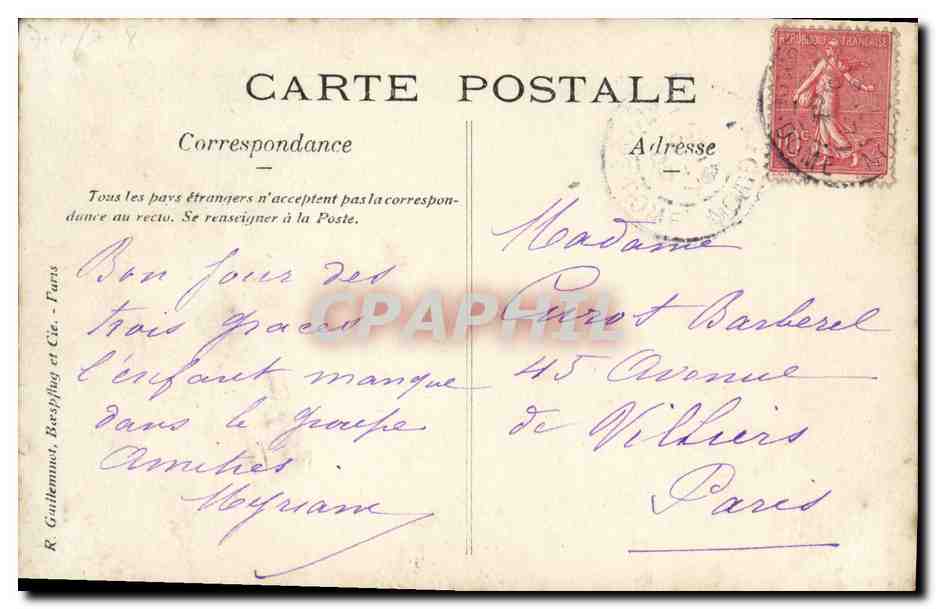 CARTE POSTALE
Correspondance
Tous les pays étrangers n'acceptent pas la correspon-
dance au recto. Se renseigner à la Poste.
Bon jour des
trois graces
l'enfant manque
dans le groupe
Amitiés
Myriam
R. Guilleminot, Bœspflug et Cie. - Paris
Adresse
REPUBLIQUE FRANÇAISE
10c
DOME
Madame
Curot Barberel
45 Avenue
de Villiers
Paris
CPAPHIL